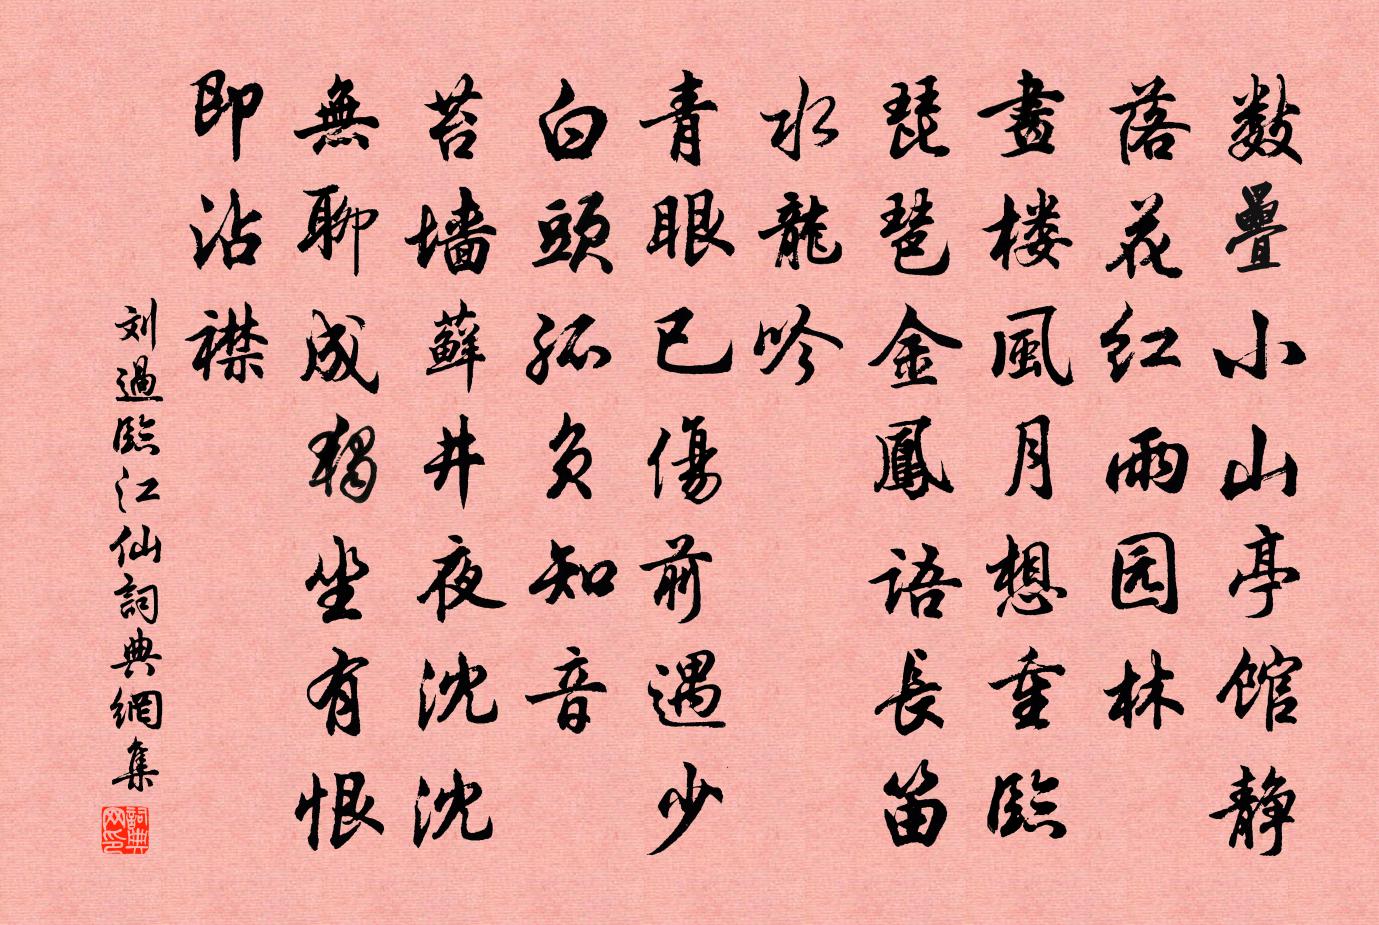 数疊小山亭馆静
落花红雨园林
畫楼風月想重臨
琵琶金鳳语長笛
水龍吟
青眼已傷前遇少
白頭孤负知音
苔墙蘚井夜沈沈
無聊成獨坐有恨
即沾襟
刘過臨江仙詞典網集
詞典网印